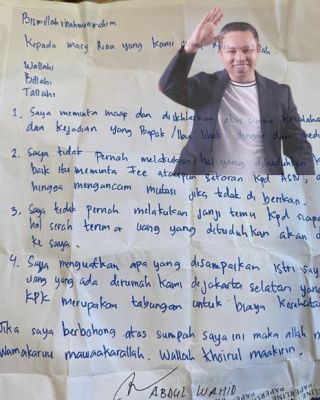 Bismillahirahmanirahim
Kepada masy Riau yang kami
Wallahi
Billahi
Tallahi
1. Saya meminta maaf dan diikhlaskan atas semua
dan kejadian yang Bapak / Ibu lihat, dengar dari
2. Saya tidak pernah melakukan hal yang dituduhkan
baik itu meminta Fee ataupun setoran kpd ASN,
hingga mengancam mutasi jika tidak di berikan.
3. Saya tidak pernah melakukan janji temu kpd
hal serah terima uang yang dituduhkan akan
ke saya.
4. Saya menguatkan apa yang disampaikan Istri
uang yang ada dirumah kami di Jakarta selatan yang
KPK merupakan tabungan untuk biaya kesehatan
Jika saya berbohong atas sumpah saya ini maka allah
Wamakaruu mawaakarallah. Wallah khoirul maakirin.
ABDUL WAHID